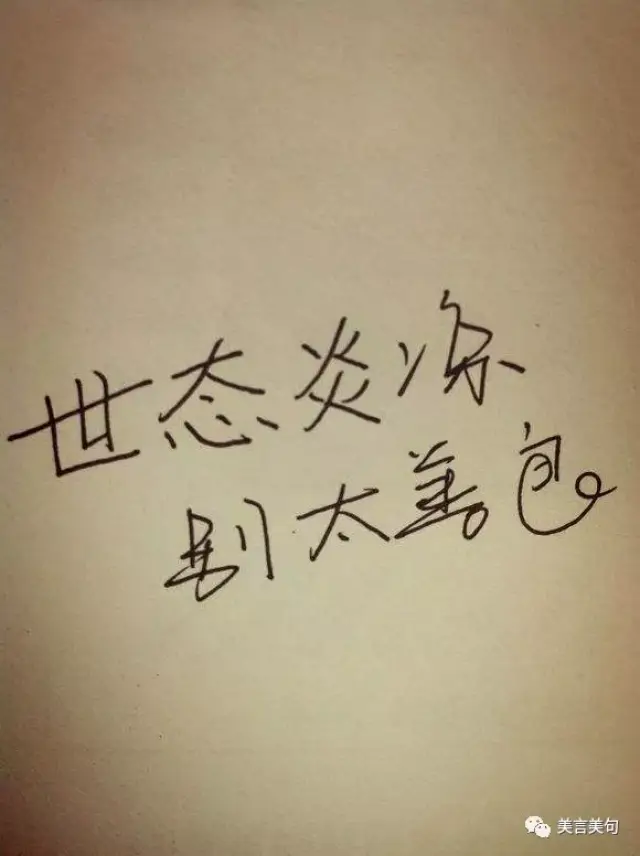 世态炎凉
别太善良
美言美句